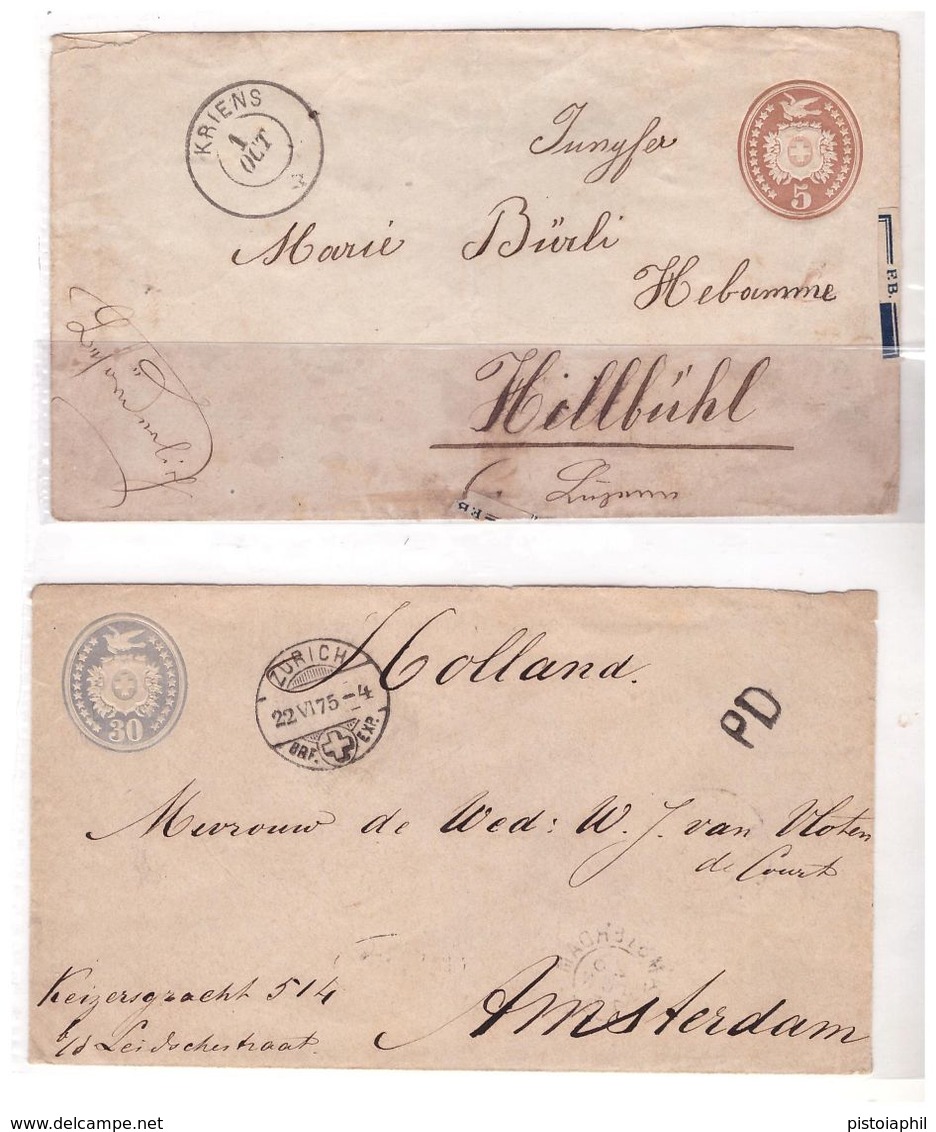 KRIENS
1
OCT
5
Jungfer
Marie Bürli
Hebamme
F.B.
Hillbühl
Luzern
F.B.
30
ZÜRICH
22 VI 75 – 4
BRF. EXP.
Holland.
PD
Mevrouw de Wed: W. J. van Vloten
de Court
Keizersgracht 514
b/d Leidschestraat.
Amsterdam
pistoiaphil